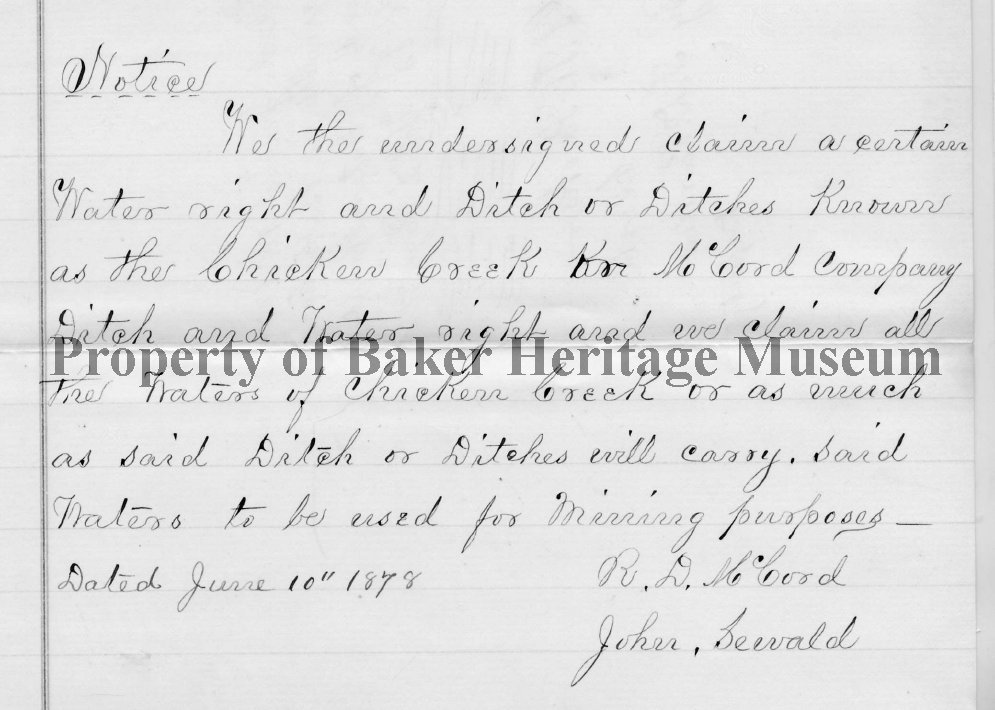 Notice
We the undersigned claim a certain
Water right and Ditch or Ditches Known
as the Chicken Creek Kn McCord Company
Ditch and Water right and we claim all
Property of Baker Heritage Museum
the Waters of Chicken Creek or as much
as said Ditch or Ditches will carry. Said
Waters to be used for Mining purposes —
Dated June 10" 1878
R. D. McCord
John, Sewald